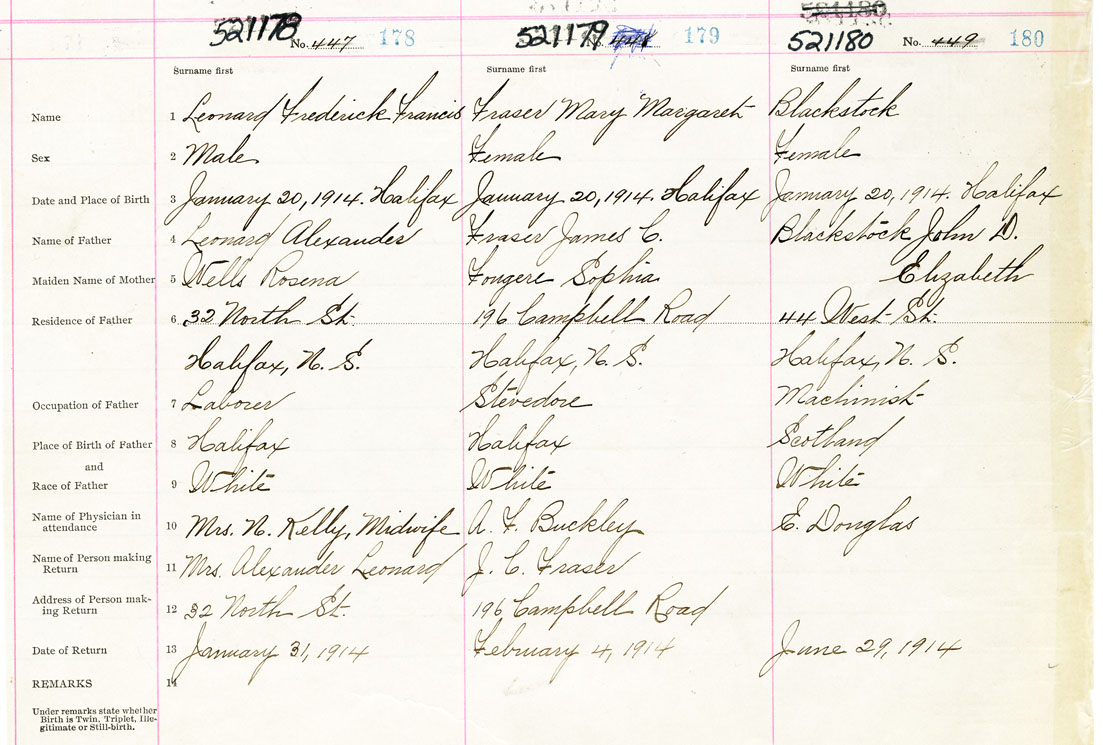 521178 No. 447 178 521179 No. 179 521180 No. 449 180
Surname first Surname first Surname first
Name 1 Leonard Frederick Francis Fraser Mary Margaret Blackstock
Sex 2 Male Female Female
Date and Place of Birth 3 January 20, 1914. Halifax January 20, 1914. Halifax January 20, 1914. Halifax
Name of Father 4 Leonard Alexander Fraser James C. Blackstock John D.
Maiden Name of Mother 5 Wells Rosena Fougere Sophia Elizabeth
Residence of Father 6 32 North St. 196 Campbell Road 44 West St.
Halifax, N. S. Halifax, N. S. Halifax, N. S.
Occupation of Father 7 Laborer Stevedore Machinist
Place of Birth of Father 8 Halifax Halifax Scotland
and
Race of Father 9 White White White
Name of Physician in
attendance 10 Mrs. N. Kelly, Midwife A. F. Buckley E. Douglas
Name of Person making
Return 11 Mrs. Alexander Leonard J. C. Fraser
Address of Person mak-
ing Return 12 32 North St. 196 Campbell Road
Date of Return 13 January 31, 1914 February 4, 1914 June 29, 1914
REMARKS 14
Under remarks state whether
Birth is Twin, Triplet, Ille-
gitimate or Still-birth.